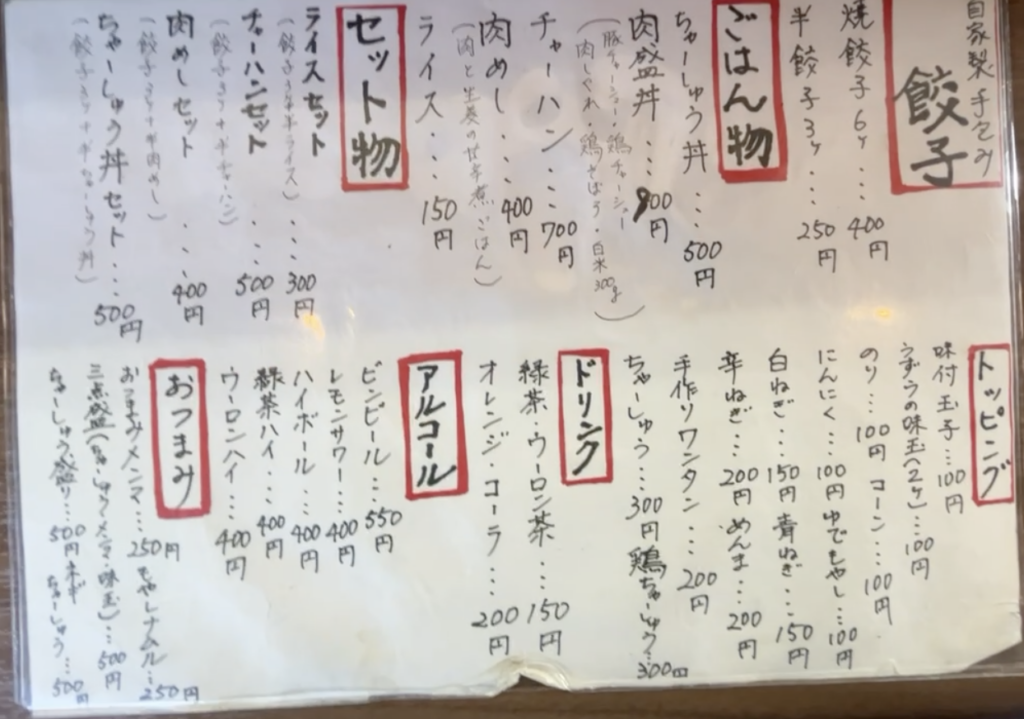 自家製 手包み
餃子
焼餃子6ヶ・・・400円
半餃子3ヶ・・・250円
ごはん物
ちゃーしゅう丼・・・500円
肉盛丼・・・900円
(豚チャーシュー・鶏チャーシュー
肉しぐれ・鶏そぼろ・白米300g)
チャーハン・・・700円
肉めし・・・400円
(肉と生姜の甘辛煮ごはん)
ライス・・・150円
セット物
ライスセット・・・300円
(餃子3ヶ+半ライス)
チャーハンセット・・・500円
(餃子3ヶ+半チャーハン)
肉めしセット・・・400円
(餃子3ヶ+半肉めし)
ちゃーしゅう丼セット・・・500円
(餃子3ヶ+半ちゃーしゅう丼)
トッピング
味付玉子・・・100円
うずらの味玉(2ヶ)・・・100円
のり・・・100円 コーン・・・100円
にんにく・・・100円 ゆでもやし・・・100円
白ねぎ・・・150円 青ねぎ・・・150円
辛ねぎ・・・200円 めんま・・・200円
手作りワンタン・・・200円
ちゃーしゅう・・・300円 鶏ちゃーしゅう・・・300円
ドリンク
緑茶・ウーロン茶・・・150円
オレンジ・コーラ・・・200円
アルコール
ビンビール・・・550円
レモンサワー・・・400円
ハイボール・・・400円
緑茶ハイ・・・400円
ウーロンハイ・・・400円
おつまみ
おつまみメンマ・・・250円 もやしナムル・・・250円
三点盛(ちゃーしゅう・メンマ・味玉)・・・500円
ちゃーしゅう盛り・・・500円 ネギちゃーしゅう・・・500円